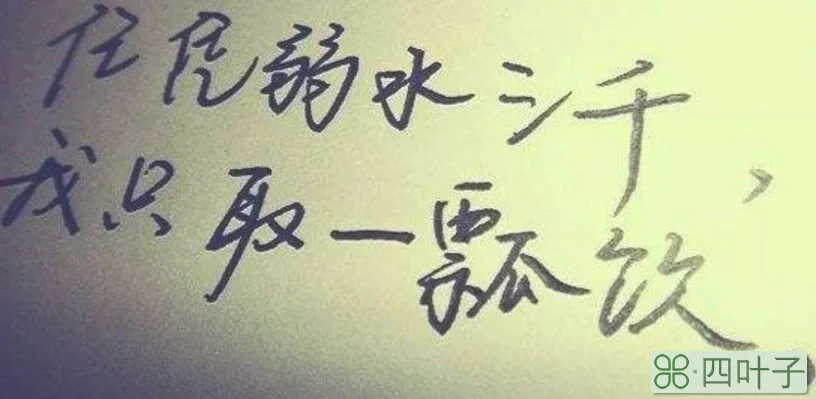 任凭弱水三千，
我只取一瓢饮
四叶子